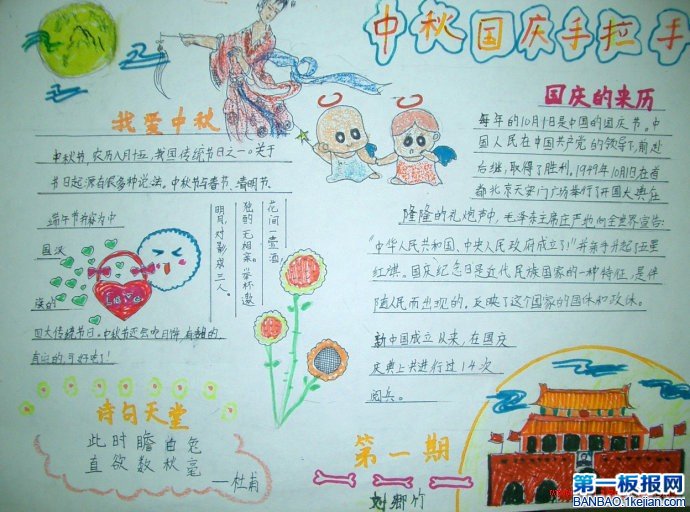 中秋国庆手拉手
我爱中秋
中秋节,农历八月十五,我国传统节日之一。关于
节日起源有很多种说法。中秋节与春节、清明节、
端午节并称为中
国汉
族的
四大传统节日。中秋节还会吃月饼,有甜的,
有咸的,可好吃了!
花间一壶酒,
独酌无相亲。举杯邀
明月,对影成三人。
Love
国庆的来历
每年的10月1日是中国的国庆节。中
国人民在中国共产党的领导下,前赴
后继,取得了胜利。1949年10月1日在首
都北京天安门广场举行了开国大典,在
隆隆的礼炮声中,毛泽东主席庄严地向全世界宣告:
“中华人民共和国、中央人民政府成立了!”并亲手升起了五星
红旗。国庆纪念日是近代民族国家的一种特征,是伴
随人民而出现的,反映了这个国家的国体和政体。
新中国成立以来,在国庆
庆典上共进行过14次
阅兵。
诗句天堂
此时瞻白兔
直欲数秋毫
—杜甫
第一期
刘乡竹
第一板报网
BANBAO.1kejian.com